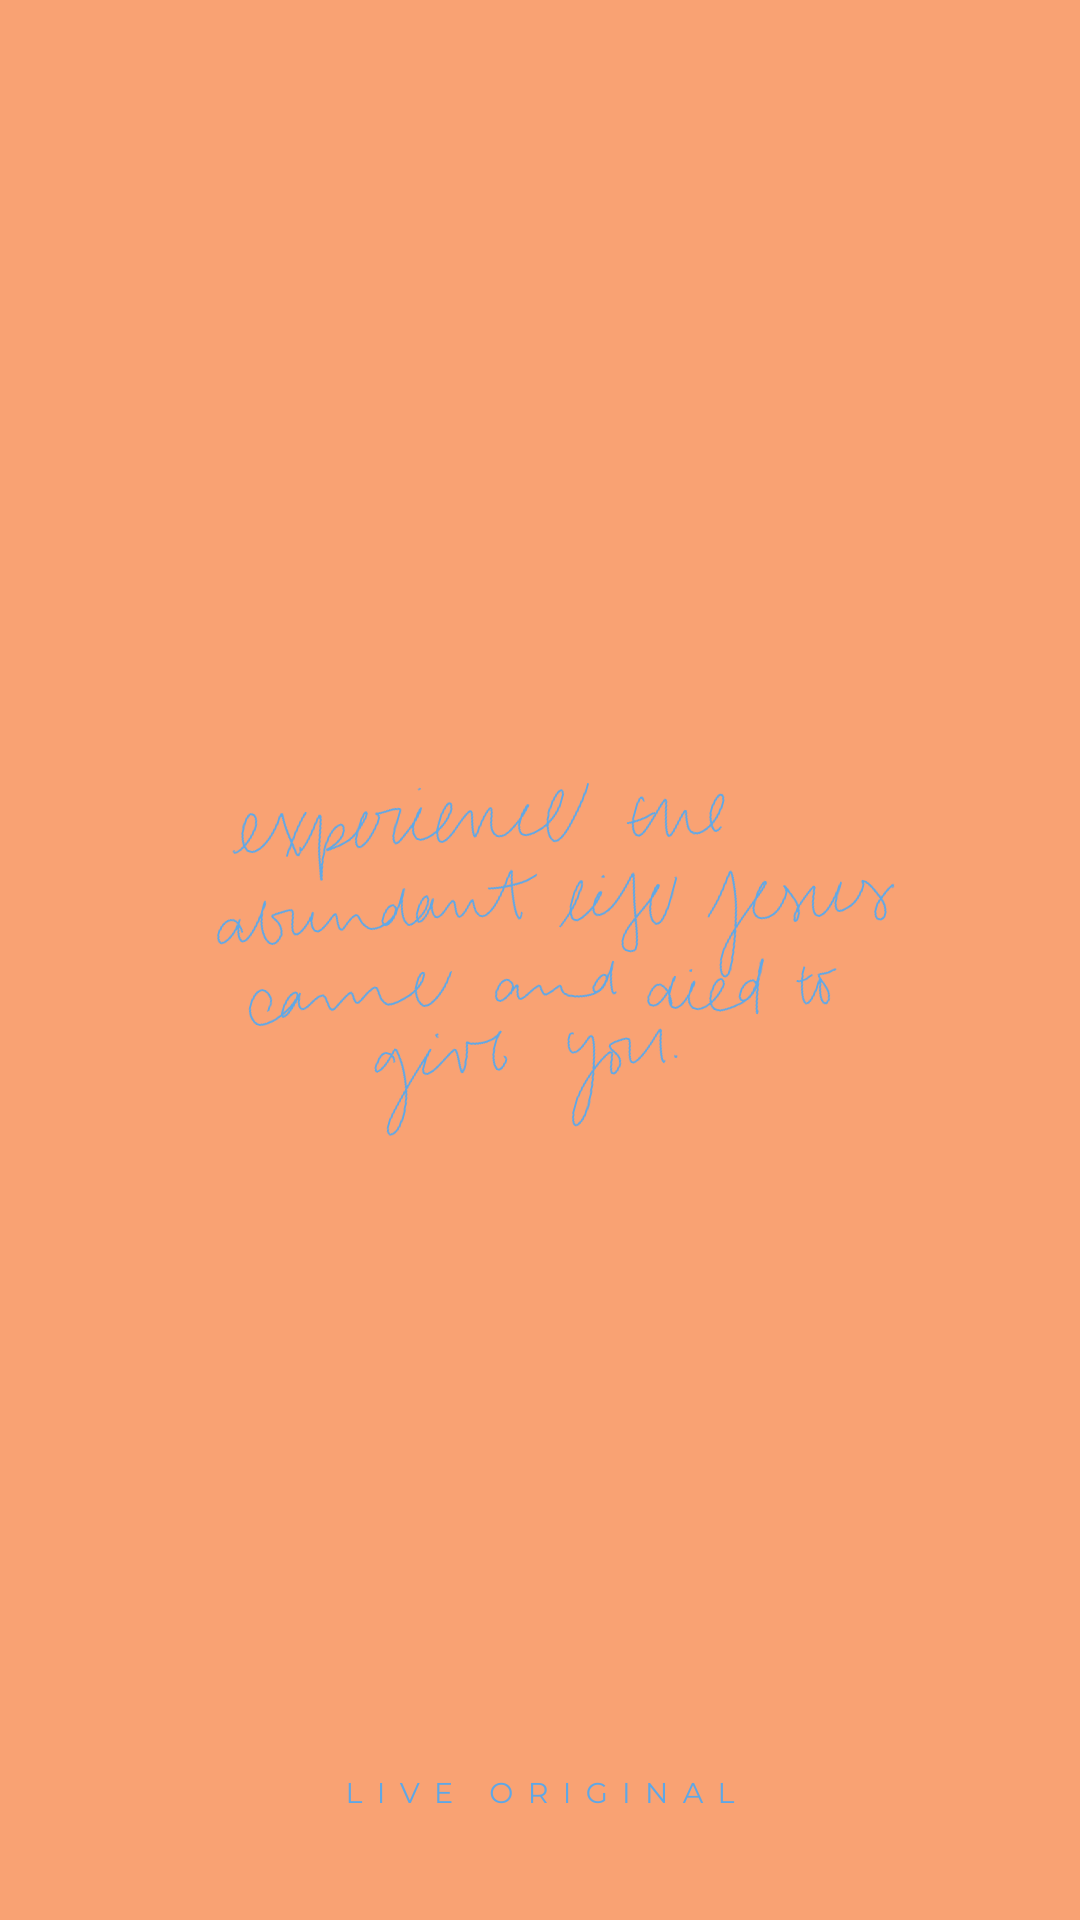 experience the
abundant life Jesus
came and died to
give you.
LIVE ORIGINAL